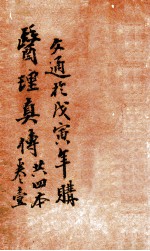 文通於戊寅年購
醫理真傳共四本
卷壹